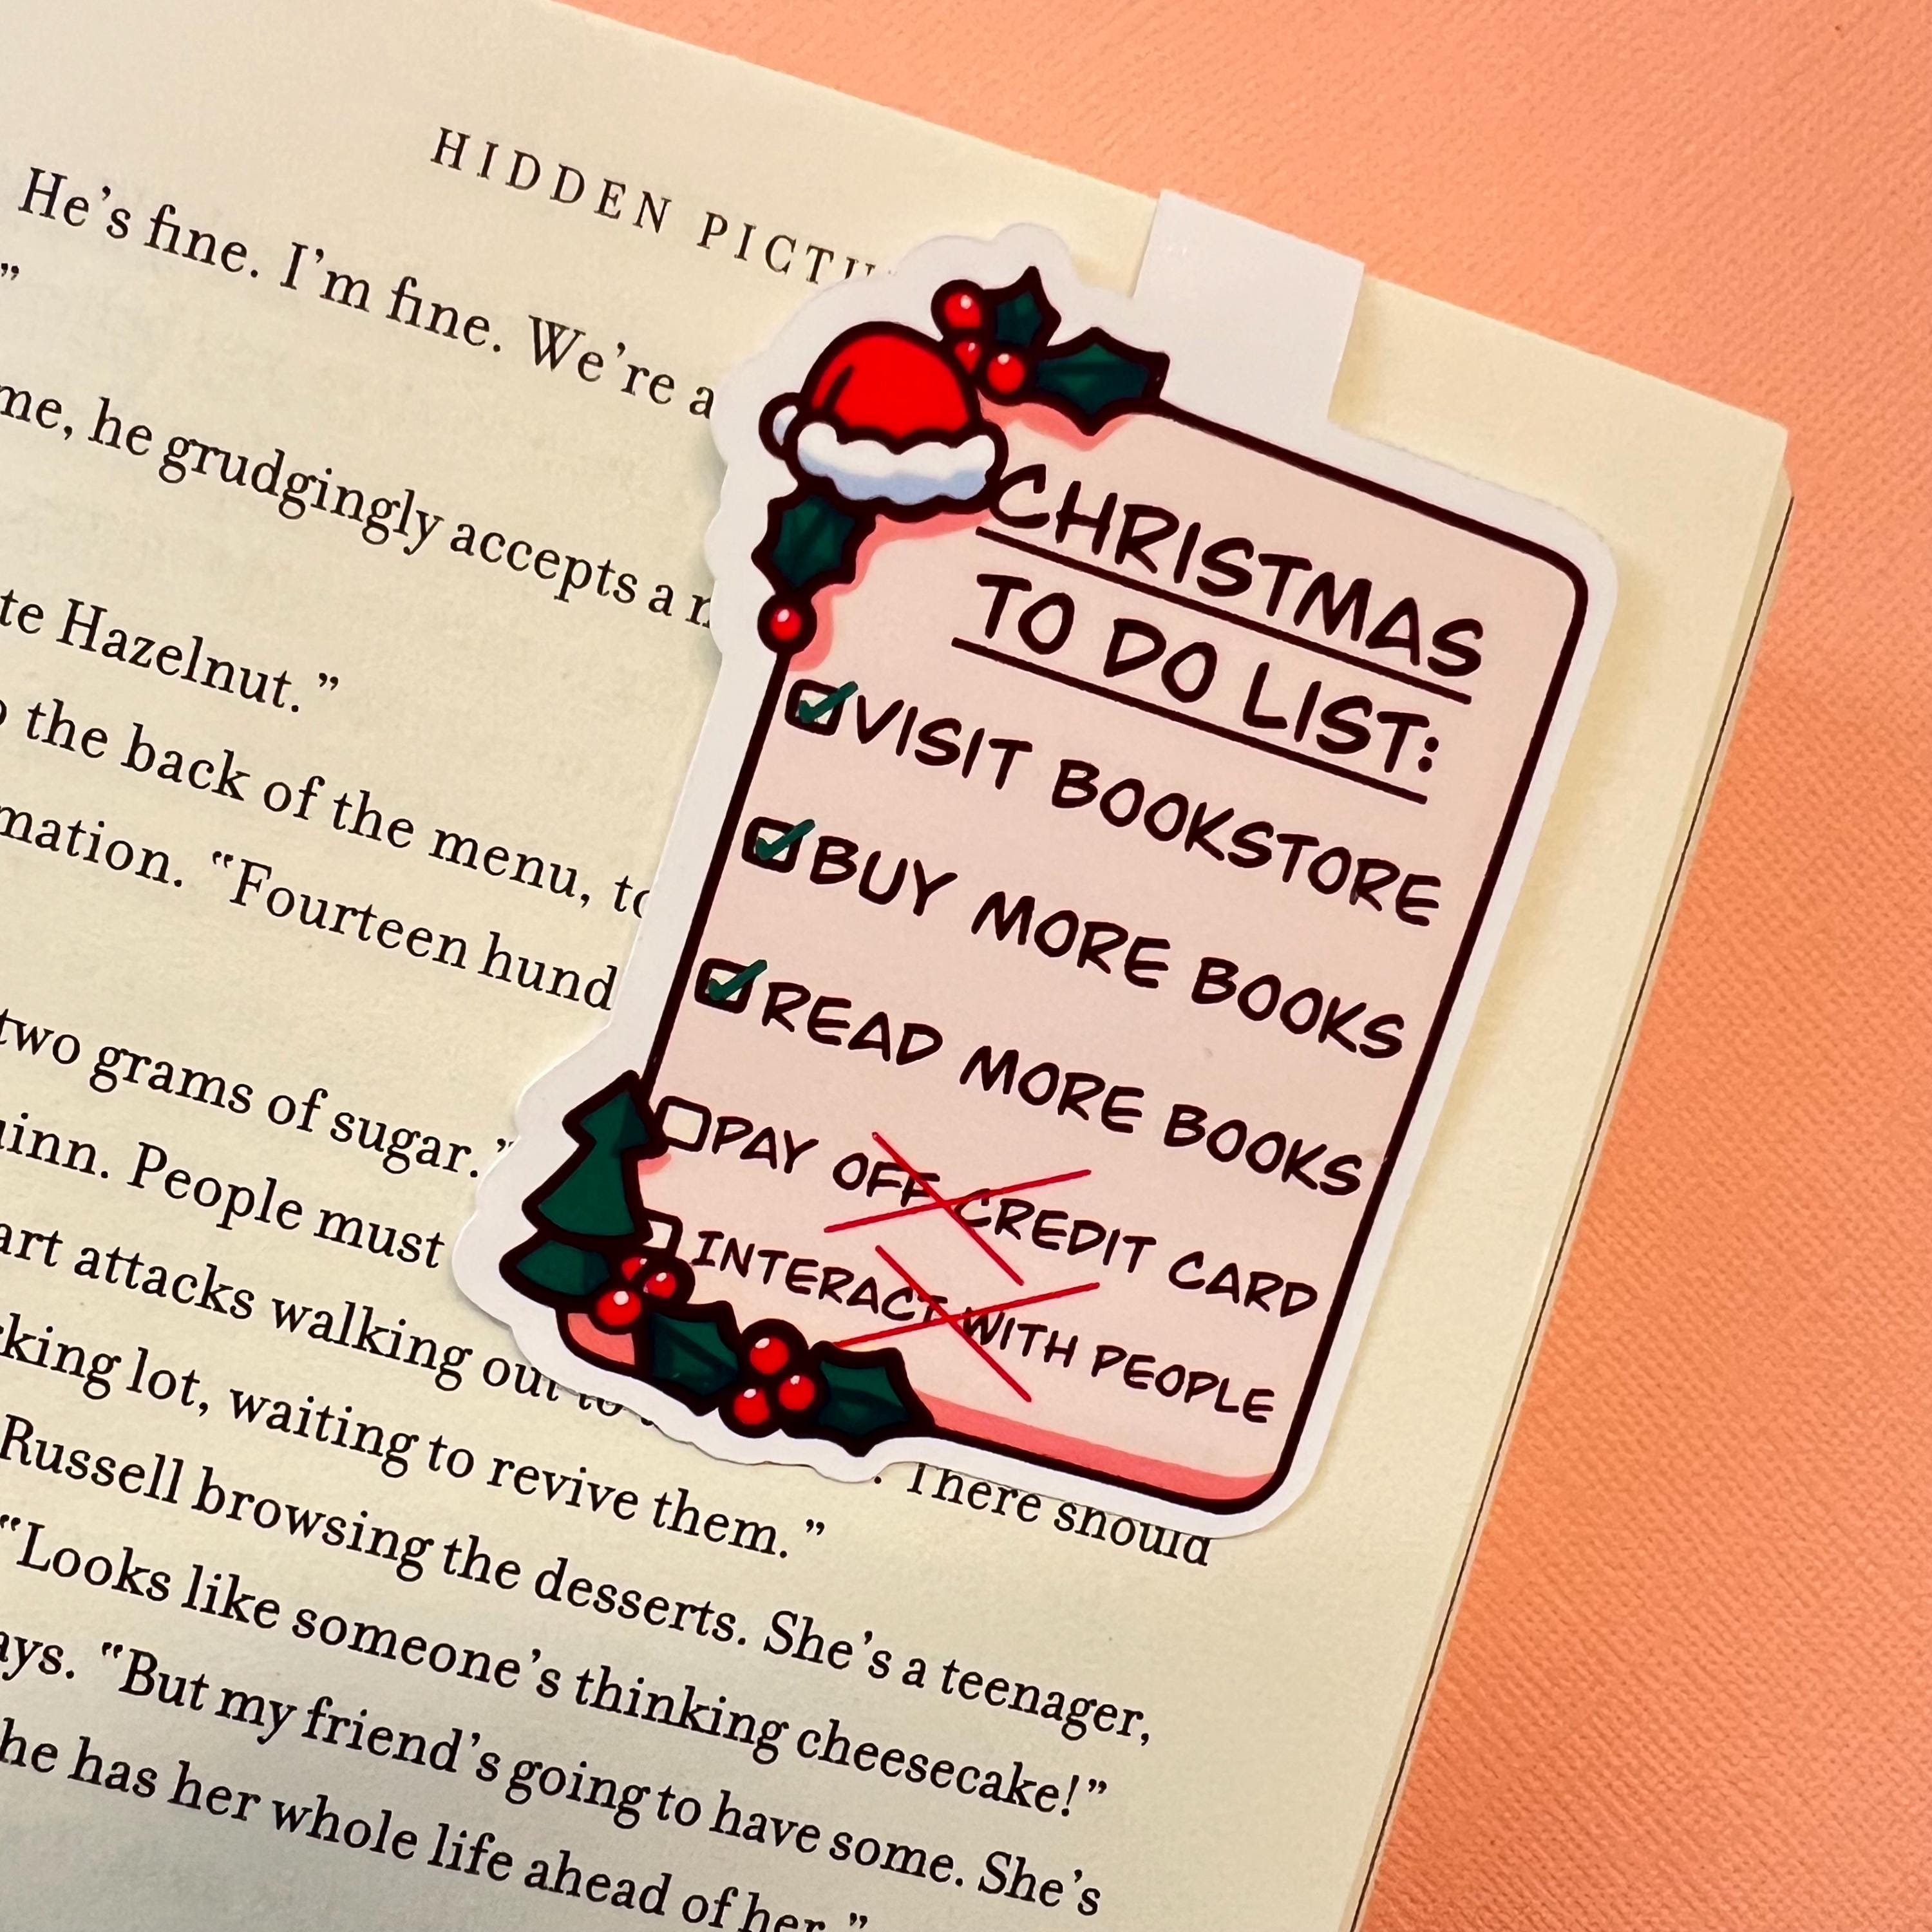 HIDDEN
He's fine. I'm fine. We're a
”
me, he grudgingly accepts a
te Hazelnut.”
the back of the menu,
mation. “Fourteen
two grams of sugar.”
uinn. People must
art attacks walking out to
. There should
king lot, waiting to revive them.”
Russell browsing the desserts. She's a teenager,
“Looks like someone's thinking cheesecake!”
ays. “But my friend's going to have some. She's
he has her whole life ahead of her.”
CHRISTMAS
TO DO LIST:
VISIT BOOKSTORE
BUY MORE BOOKS
READ MORE BOOKS
PAY OFF CREDIT CARD
INTERACT WITH PEOPLE